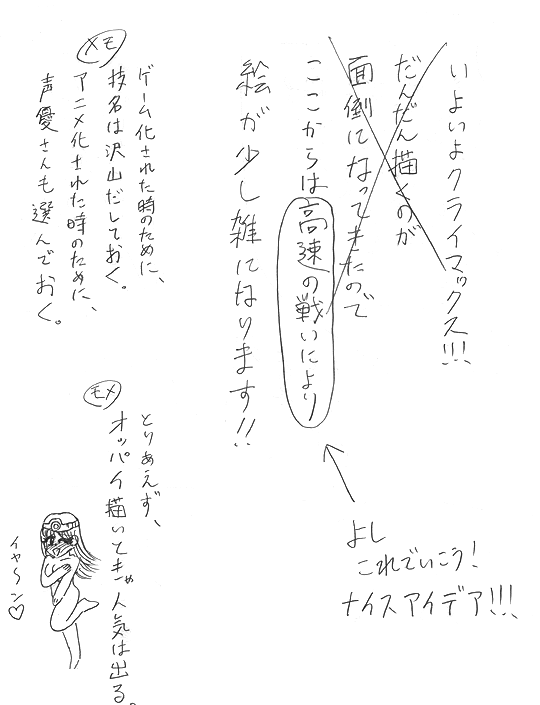 いよいよクライマックス!!!
だんだん描くのが
面倒になってきたので
ここからは高速の戦いにより
絵が少し雑になります!!
よし
これでいこう!
ナイスアイデア!!!
メモ
ゲーム化された時のために、
技名は沢山だしておく。
アニメ化された時のために、
声優さんも選んでおく。
メモ
とりあえず、
オッパイ描いときゃ人気は出る。
イヤ〜ン♡